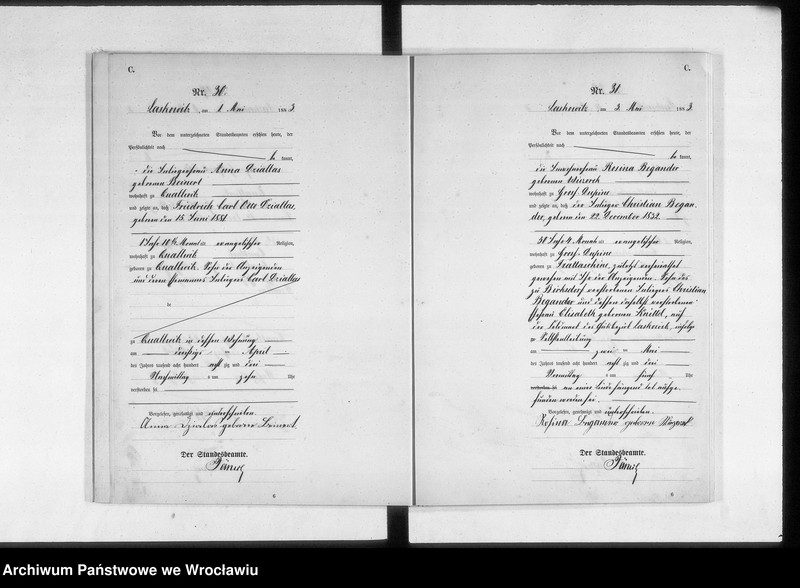 C.
Nr. 30.
Laskowitz, am 1. Mai 1883.
Vor dem unterzeichneten Standesbeamten erschien heute, der
Persönlichkeit nach
kannt,
die Inliegerfrau Anna Dziallas
geborene Beinert
wohnhaft zu
und zeigte an, daß Friedrich Carl Otto Dziallas,
geboren den 15. Juni 1881
1 Jahr 10 ½ Monat alt, evangelischer Religion,
wohnhaft zu
geboren zu Sohn der Anzeigenden
und deren Ehemannes Inliegers Carl Dziallas
in
zu in dessen Wohnung
am dreißigsten April
des Jahres tausend acht hundert achtzig und drei
Nachmittag s um zehn Uhr
verstorben sei
Vorgelesen, genehmigt und unterschrieben.
Anna Dziallas geborene Beinert
Der Standesbeamte.
C.
Nr. 31.
Laskowitz, am 3. Mai 1883.
Vor dem unterzeichneten Standesbeamten erschien heute, der
Persönlichkeit nach
kannt,
die Rosina Begander
geborene
wohnhaft zu Groß Dupine
und zeigte an, daß der Inlieger Christian Began-
der, geboren den 22. December 1832
Jahr 4 Monat alt, evangelischer Religion,
wohnhaft zu Groß Dupine
geboren zu zuletzt verheirathet
gewesen mit der Anzeigenden. Sohn des
zu verstorbenen Inliegers Christian
Begander und dessen daselbst verstorbenen
Ehefrau Elisabeth geborenen Knittel, auf
der des Gutsbezirk Laskowitz, infolge
zu
am zwei ten Mai
des Jahres tausend acht hundert achtzig und drei
Vormittag s um fünf Uhr
verstorben sei an einer Linde hängend todt aufge-
funden worden sei.
Vorgelesen, genehmigt und unterschrieben.
Rosina geborene
Der Standesbeamte.
6
Archiwum Państwowe we Wrocławiu